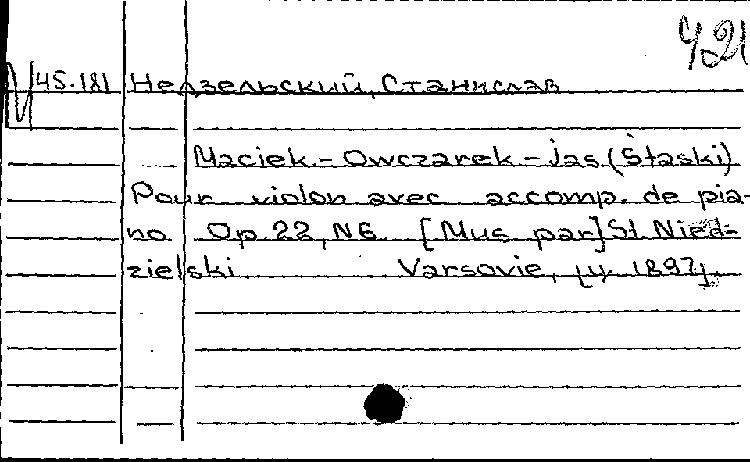 421
45.181 Недзельский, Станислав
Maciek - Owczarek - Jas (Staski)
Pour violon avec accomp. de pia-
no Op. 22, N6. [Mus par] St. Nied-
zielski Varsovie, 1897.